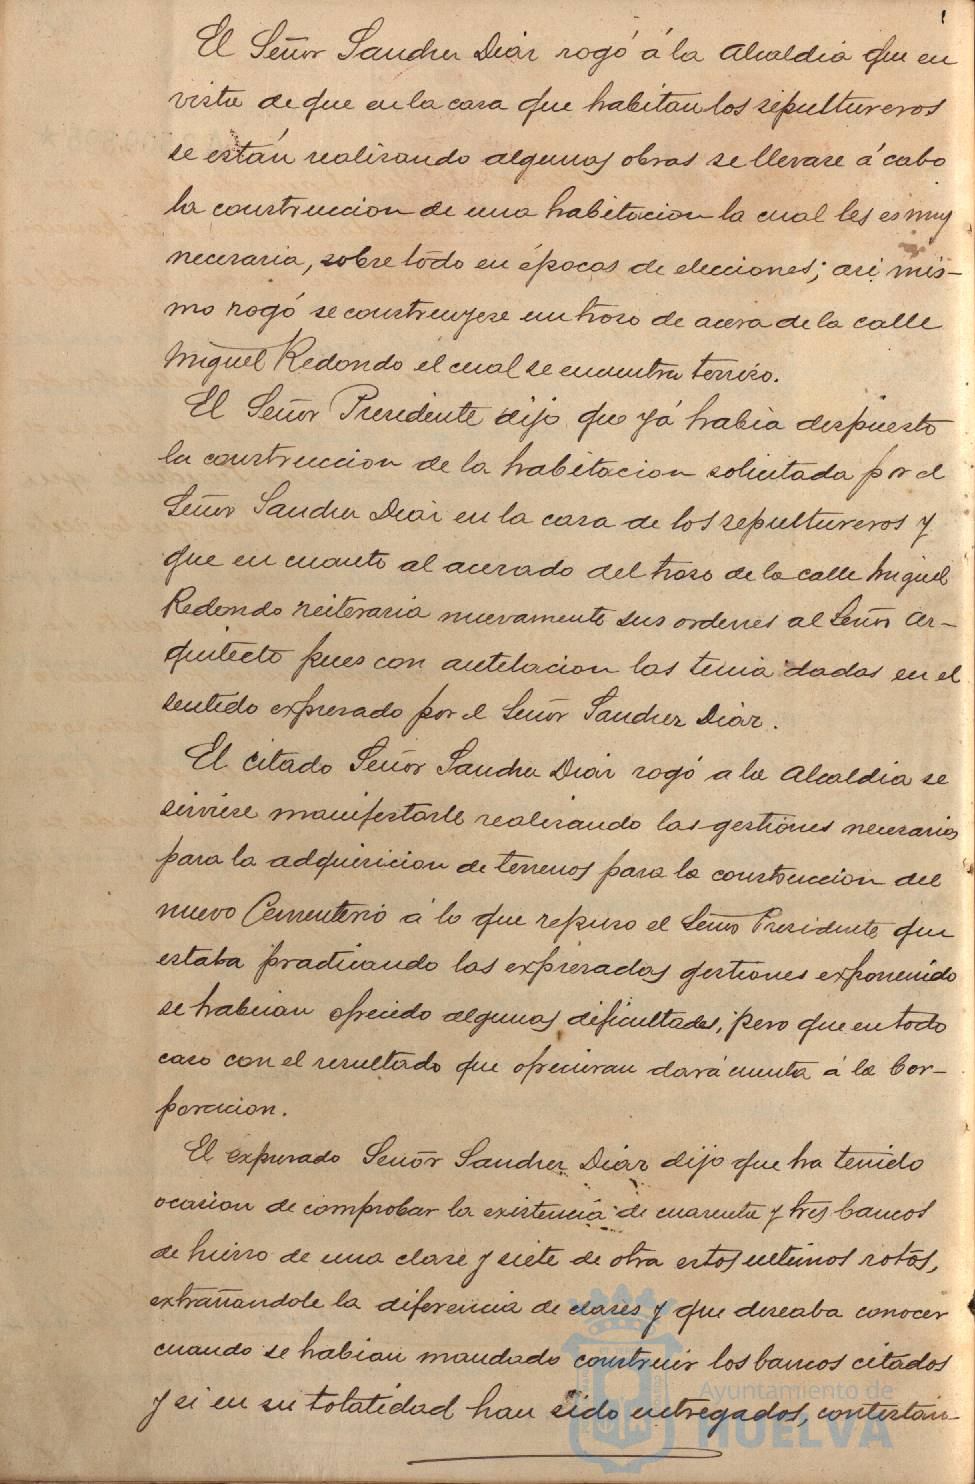 El Señor Sanchez Diaz rogó á la Alcaldia que en
vista de que en la casa que habitan los sepultureros
se están realizando algunas obras se llevase á cabo
la construccion de una habitacion la cual les es muy
necesaria, sobre todo en épocas de elecciones; asi mis-
mo rogó se construyese un trozo de acera de la calle
Miguel Redondo el cual se encuentra terrizo.
El Señor Presidente dijo que yá habia dispuesto
la construccion de la habitacion solicitada por el
Señor Sanchez Diaz en la casa de los sepultureros y
que en cuanto al acerado del trozo de la calle Miguel
Redondo reiteraria nuevamente sus ordenes al Señor Ar-
quitecto pues con antelacion las tenia dadas en el
sentido expresado por el Señor Sanchez Diaz.
El citado Señor Sanchez Diaz rogó a la Alcaldia se
sirviese manifestarle realizando las gestiones necesarias
para la adquisicion de terrenos para la construccion del
nuevo Cementerio á lo que repuso el Señor Presidente que
estaba practicando las expresadas gestiones exponiendo
se habian ofrecido algunas dificultades, pero que en todo
caso con el resultado que ofrecieran dará cuenta á la Cor-
poracion.
El expresado Señor Sanchez Diaz dijo que ha tenido
ocasion de comprobar la existencia de cuarenta y tres bancos
de hierro de una clase y siete de otra estos ultimos rotos,
extrañandole la diferencia de clases y que deseaba conocer
cuando se habian mandado construir los bancos citados
y si en su totalidad han sido entregados, contestan-
Ayuntamiento de
HUELVA